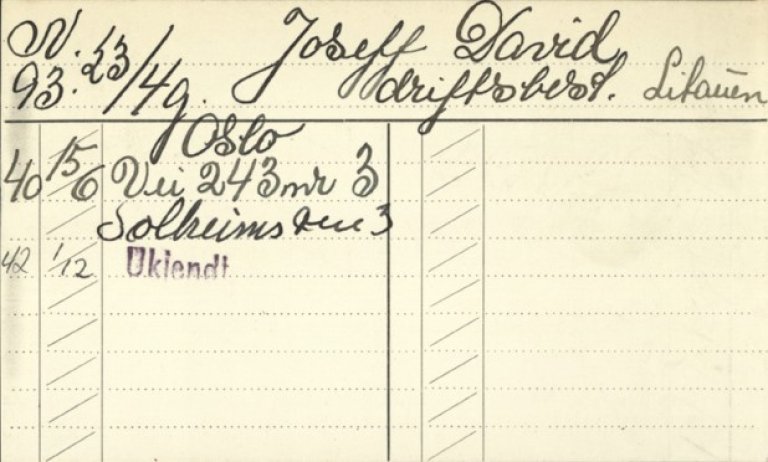 N. 23/
93. /49.
Joseff David
driftsbest. Litauen
Oslo
40 15/6 Vei 243 nr 3
Solheimsveien 3
42 1/12 Ukjendt